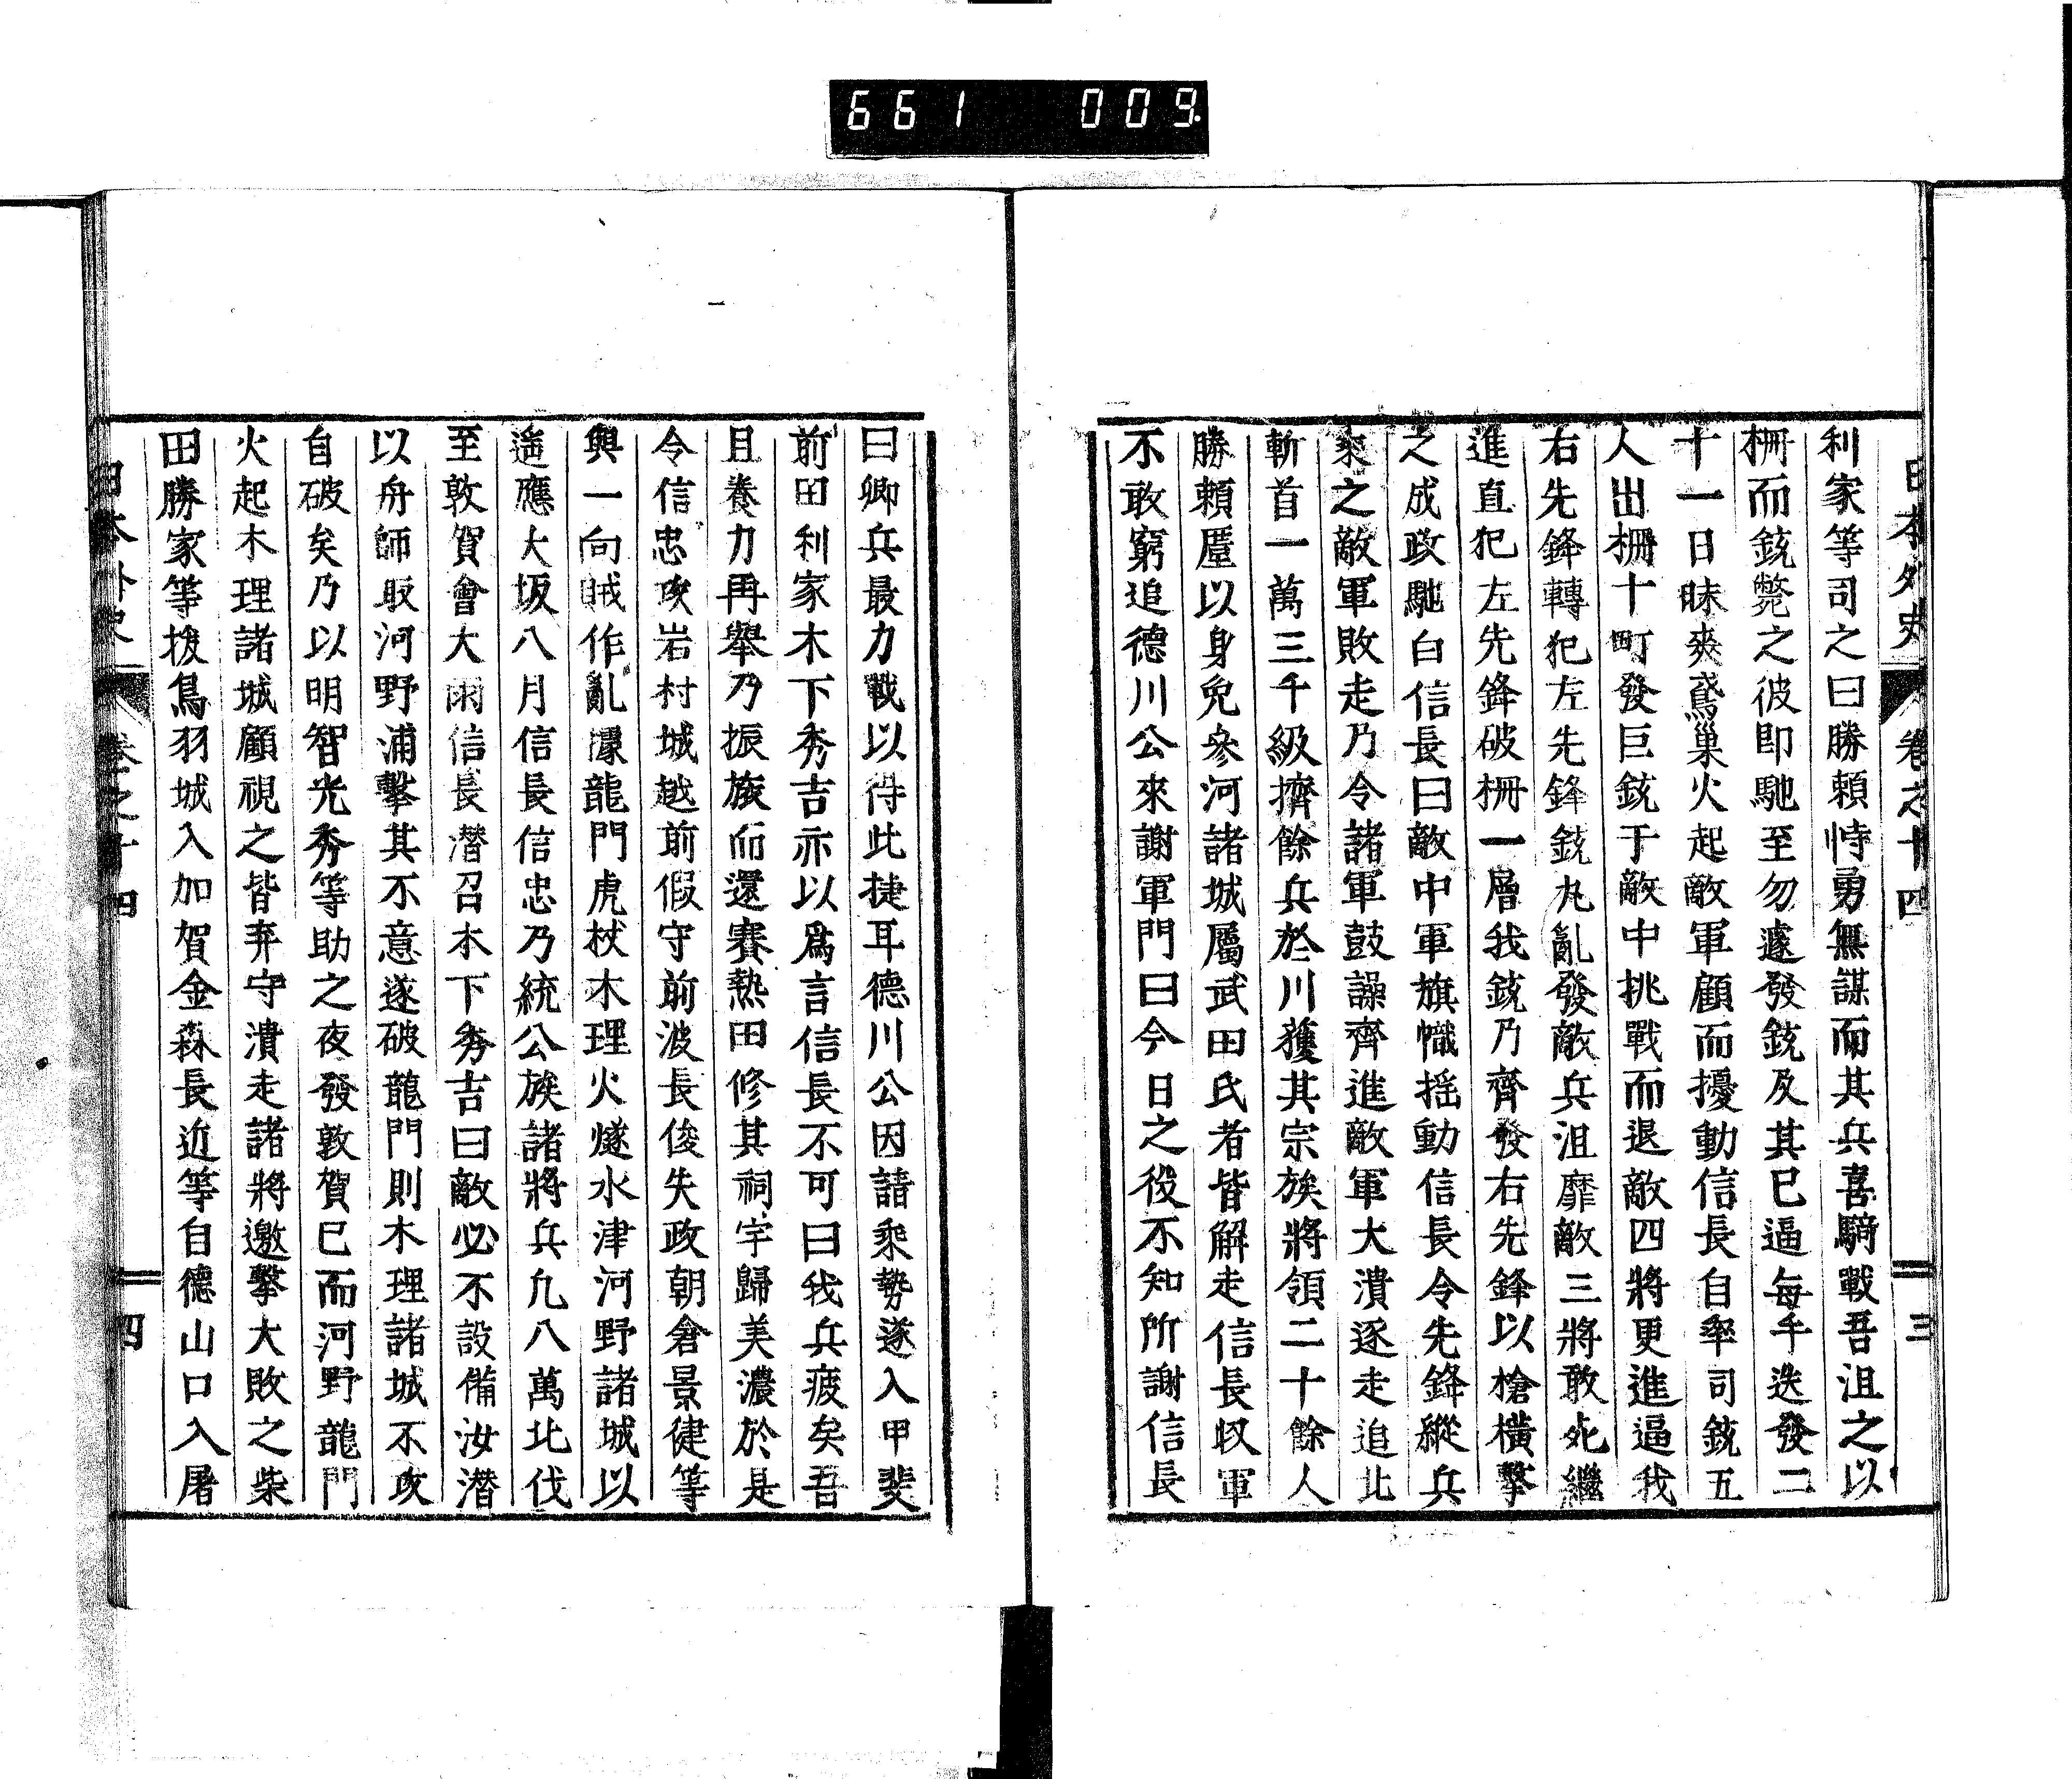 661 009
日本外史 卷之十四 三
利家等司之曰勝賴恃勇無謀而其兵喜騎戰吾沮之以
柵而銃斃之彼即馳至勿遽發銃及其已逼每千迭發二
十一日昧爽鳶巢火起敵軍顧而擾動信長自率司銃五
人出柵十町發巨銃于敵中挑戰而退敵四將更進逼我
右先鋒轉犯左先鋒銃丸亂發敵兵沮靡敵三將敢死繼
進直犯左先鋒破柵一層我銃乃齊發右先鋒以槍橫擊
之成政馳白信長曰敵中軍旗幟搖動信長令先鋒縱兵
乘之敵軍敗走乃令諸軍鼓譟齊進敵軍大潰逐走追北
斬首一萬三千級擠餘兵於川獲其宗族將領二十餘人
勝賴厪以身免參河諸城屬武田氏者皆解走信長收軍
不敢窮追德川公來謝軍門曰今日之役不知所謝信長
曰卿兵最力戰以得此捷耳德川公因請乘勢遂入甲斐
前田利家木下秀吉亦以爲言信長不可曰我兵疲矣吾
且養力再舉乃振旅而還賽熱田修其祠宇歸美濃於是
令信忠攻岩村城越前假守前波長俊失政朝倉景健等
與一向賊作亂據龍門虎杖木理火燧水津河野諸城以
遙應大坂八月信長信忠乃統公族諸將兵凡八萬北伐
至敦賀會大雨信長潛召木下秀吉曰敵必不設備汝潛
以舟師取河野浦擊其不意遂破龍門則木理諸城不攻
自破矣乃以明智光秀等助之夜發敦賀已而河野龍門
火起木理諸城顧視之皆弃守潰走諸將邀擊大敗之柴
田勝家等拔鳥羽城入加賀金森長近等自德山口入屠
日本外史 卷之十四 四